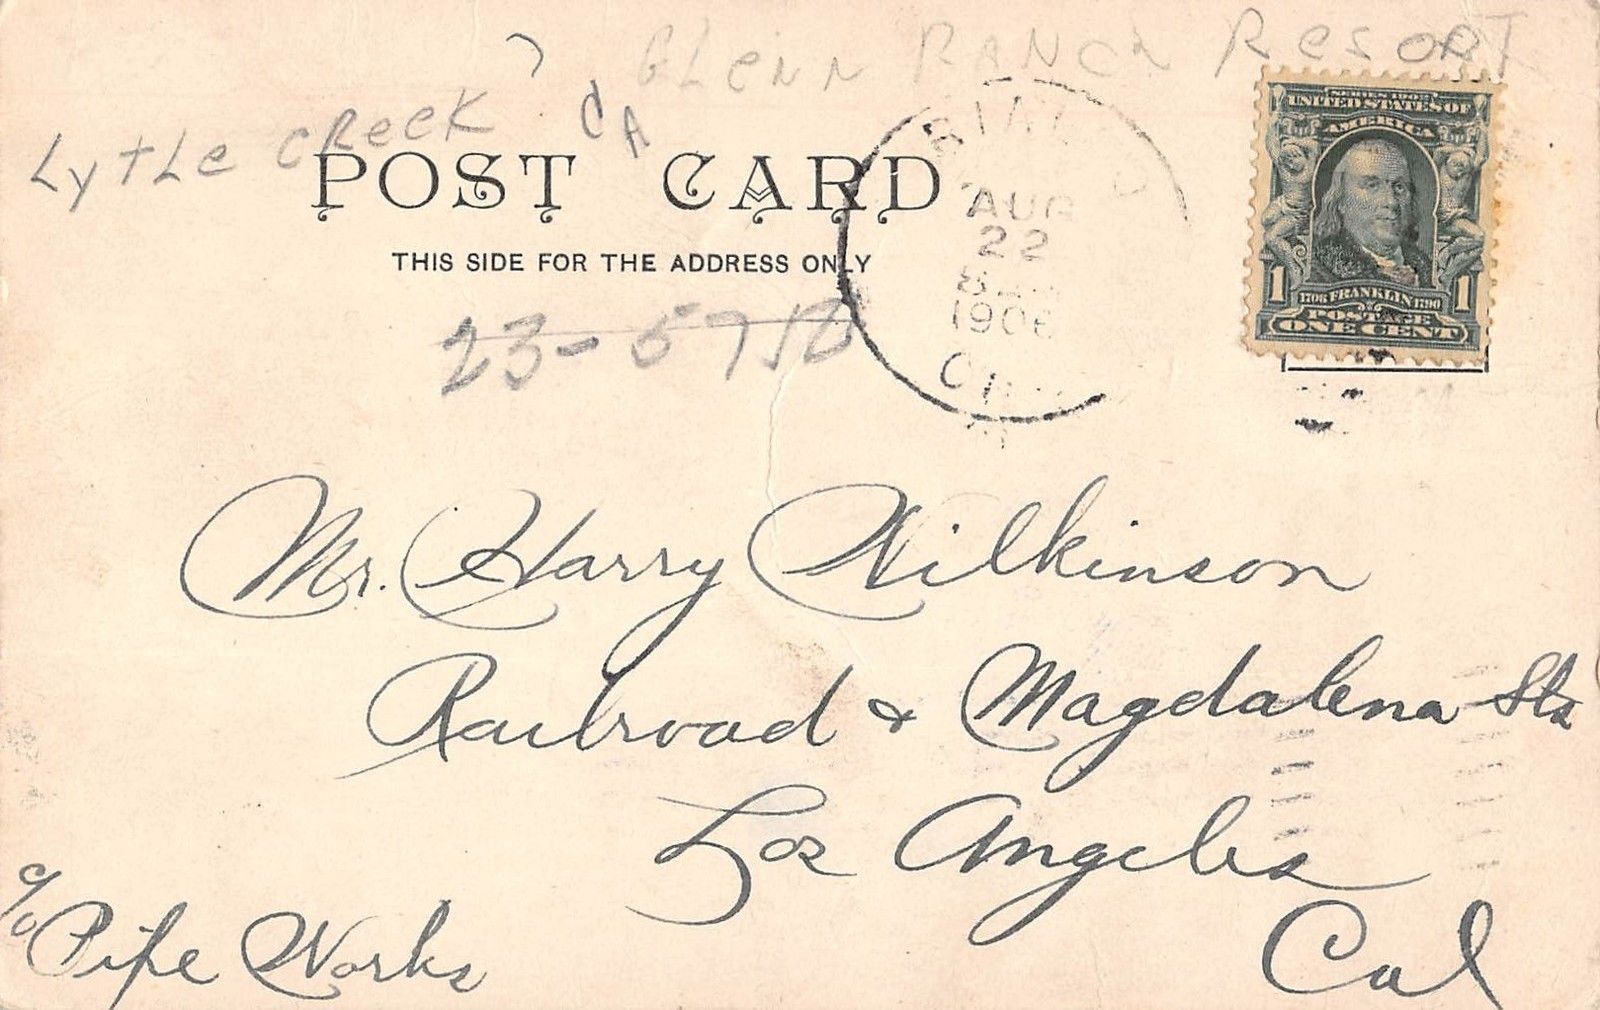 Glenn Ranch Resort
Lytle Creek, CA
POST CARD
THIS SIDE FOR THE ADDRESS ONLY
RIALTO
AUG
22
1906
SERIES 1902
UNITED STATES OF
AMERICA
1 1706 FRANKLIN 1790 1
POSTAGE
ONE CENT
Mr. Harry Wilkinson
Railroad & Magdalena Sts
Los Angeles
Cal
c/o Pipe Works